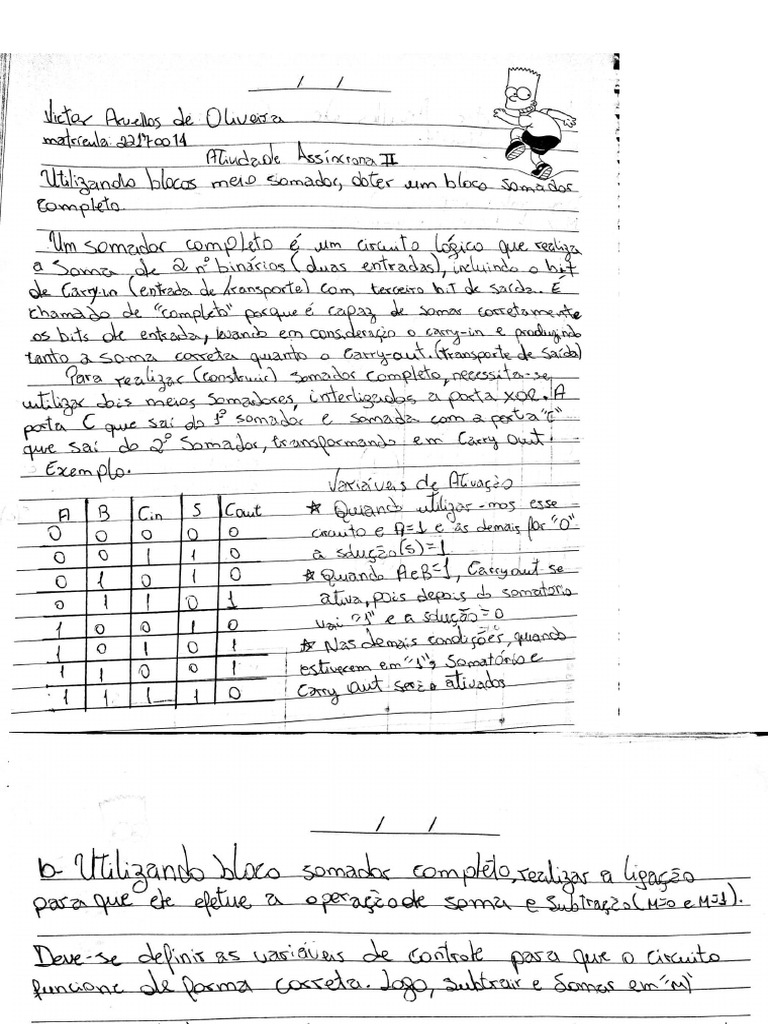 / /
Victor Avellos de Oliveira
matrícula: 22170014
Atividade Assíncrona II
Utilizando blocos meio somador, obter um bloco somador
completo.
Um somador completo é um circuito lógico que realiza
a soma de 2 nº binários (duas entradas), incluindo o bit
de Carry-in (entrada de transporte) com terceiro bit de saída. É
chamado de "completo" porque é capaz de somar corretamente
os bits de entrada, levando em consideração o carry-in e produzindo
tanto a soma correta quanto o Carry-out. (transporte de saída)
Para realizar (construir) somador completo, necessita-se
utilizar dois meios somadores, interligados a porta XOR. A
porta C que sai do 1º somador e somada com a porta "C"
que sai do 2º Somador, transformando em Carry Out.
Exemplo.
A B Cin S Cout
0 0 0 0 0
0 0 1 1 0
0 1 0 1 0
0 1 1 0 1
1 0 0 1 0
1 0 1 0 1
1 1 0 0 1
1 1 1 1 0
Variáveis de Ativação
* Quando utilizar-mos esse
circuito e A=1 e as demais for "0"
a solução(s)=1
* Quando A e B=1, Carry out se
ativa, pois depois do somatorio
vai "1" e a solução=0
* Nas demais condições, quando
estiverem em "1", Somatório e
Carry Out serão ativados
/ /
b- Utilizando bloco somador completo, realizar a ligação
para que ele efetue a operação de soma e subtração (M=0 e M=1).
Deve-se definir as variáveis de controle para que o circuito
funcione de forma correta. Logo, subtrair e somar em "M"